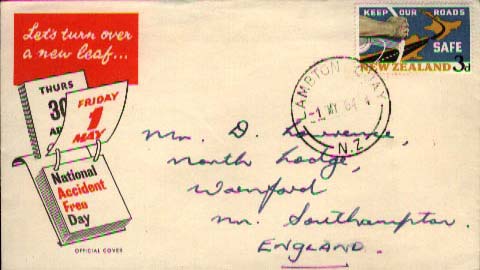 Let's turn over
a new leaf...
THURS
30
AP
FRIDAY
1
MAY
National
Accident
Free
Day
OFFICIAL COVER
KEEP OUR ROADS
SAFE
NEW ZEALAND 3d
LAMBTON QUAY
-1 MY 64
N.Z.
Mr. D. Lawrence,
North Lodge,
Warnford
Nr. Southampton.
ENGLAND.